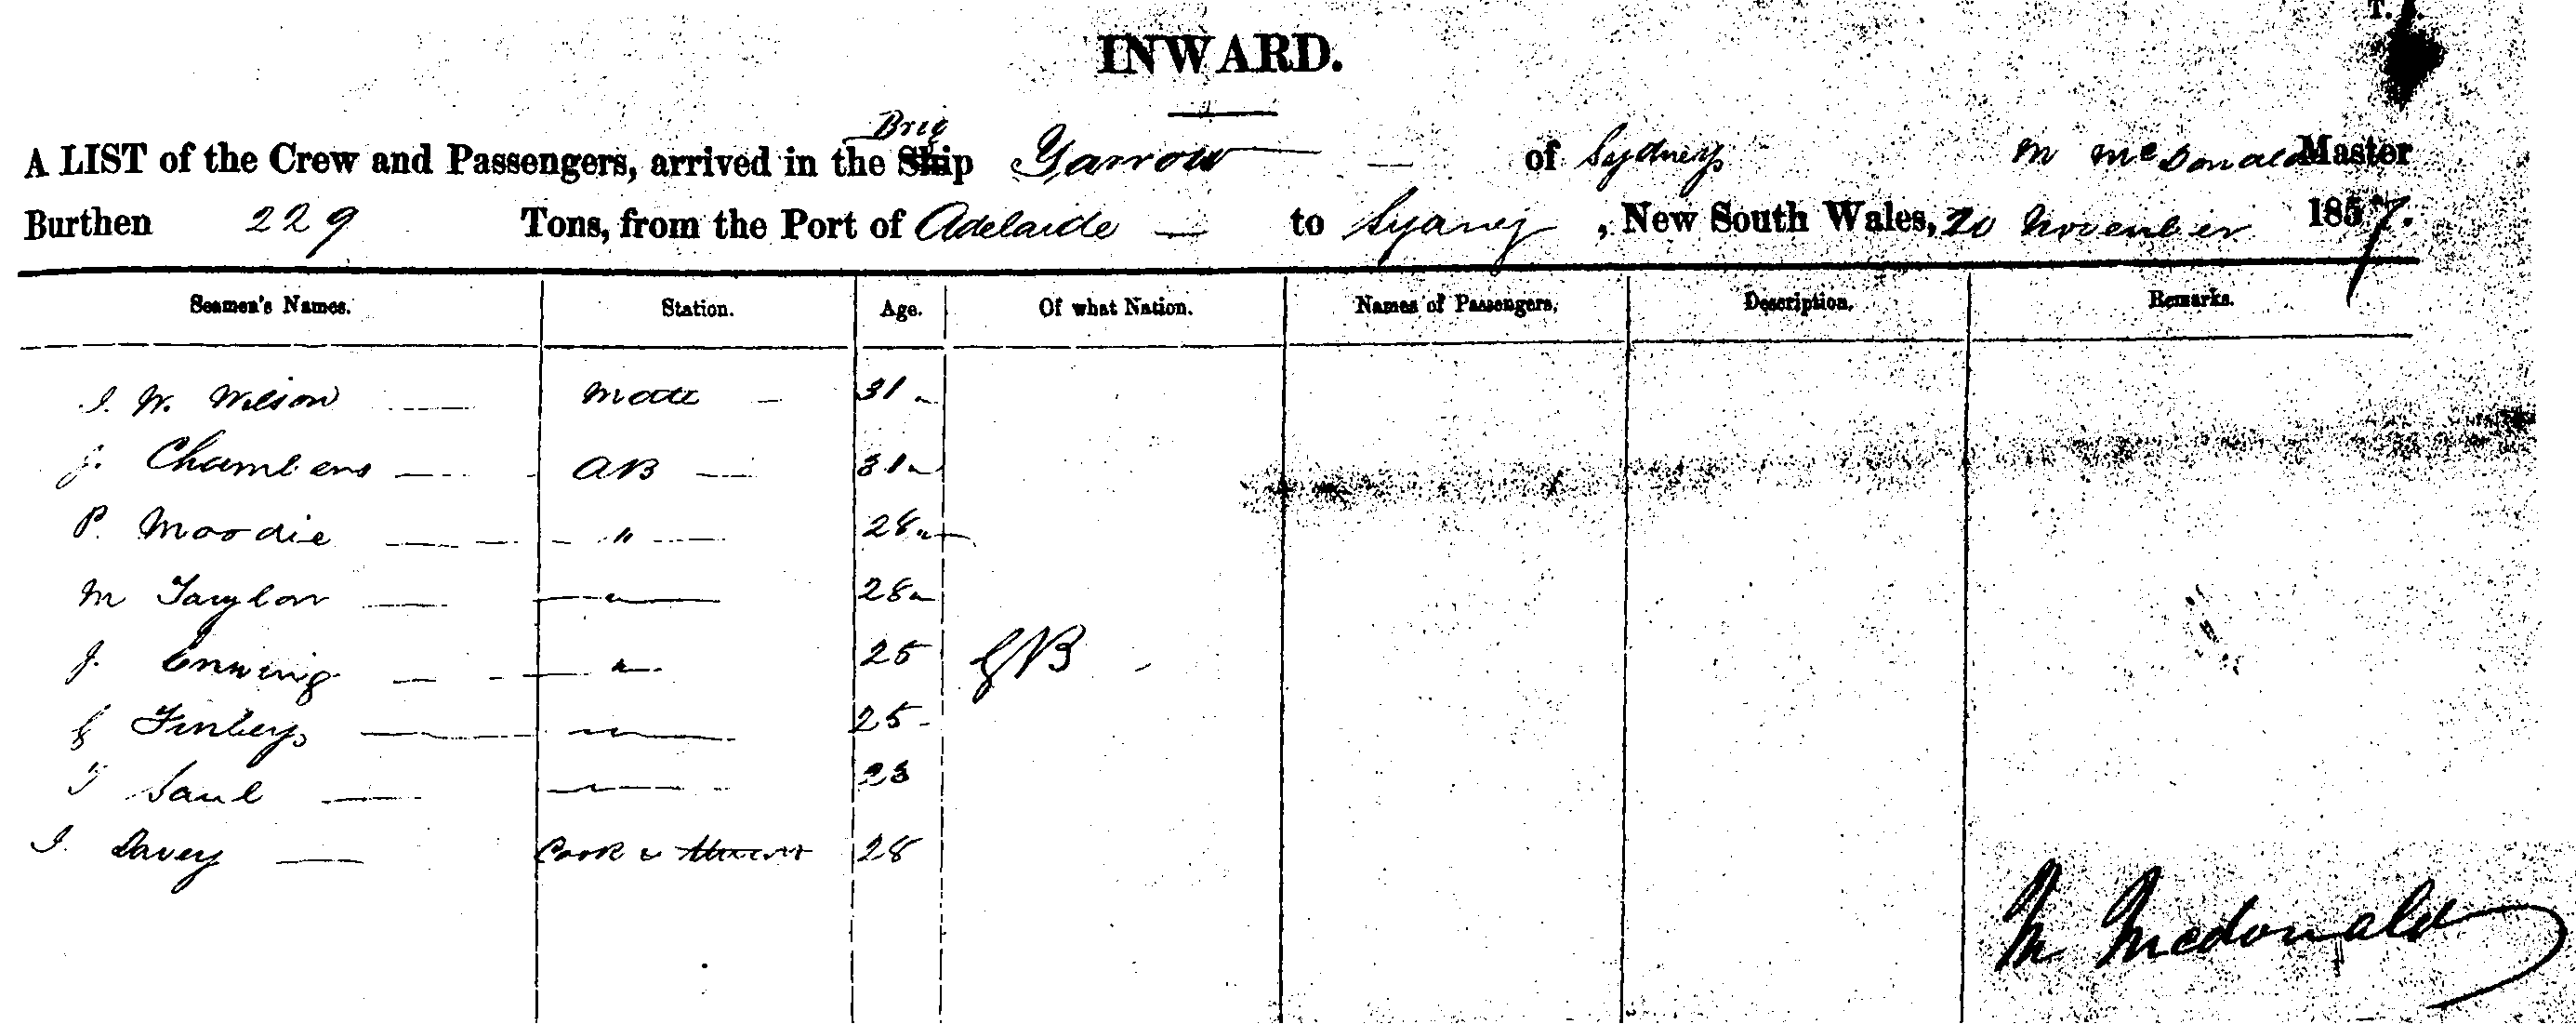 INWARD.
A LIST of the Crew and Passengers, arrived in the Ship Brig Yarrow — of Sydney M McDonald Master
Burthen 229 Tons, from the Port of Adelaide — to Sydney, New South Wales, 20 November 1857.
Seamen's Names. Station. Age. Of what Nation. Names of Passengers. Description. Remarks.
J. W. Wilson Mate 31
J. Chambers AB 31
P. Moodie " 28
M Taylor " 28
J. " 25 GB
G Finley " 25
T Saul " 23
J. Davey Cook & Steward 28
M Mcdonald